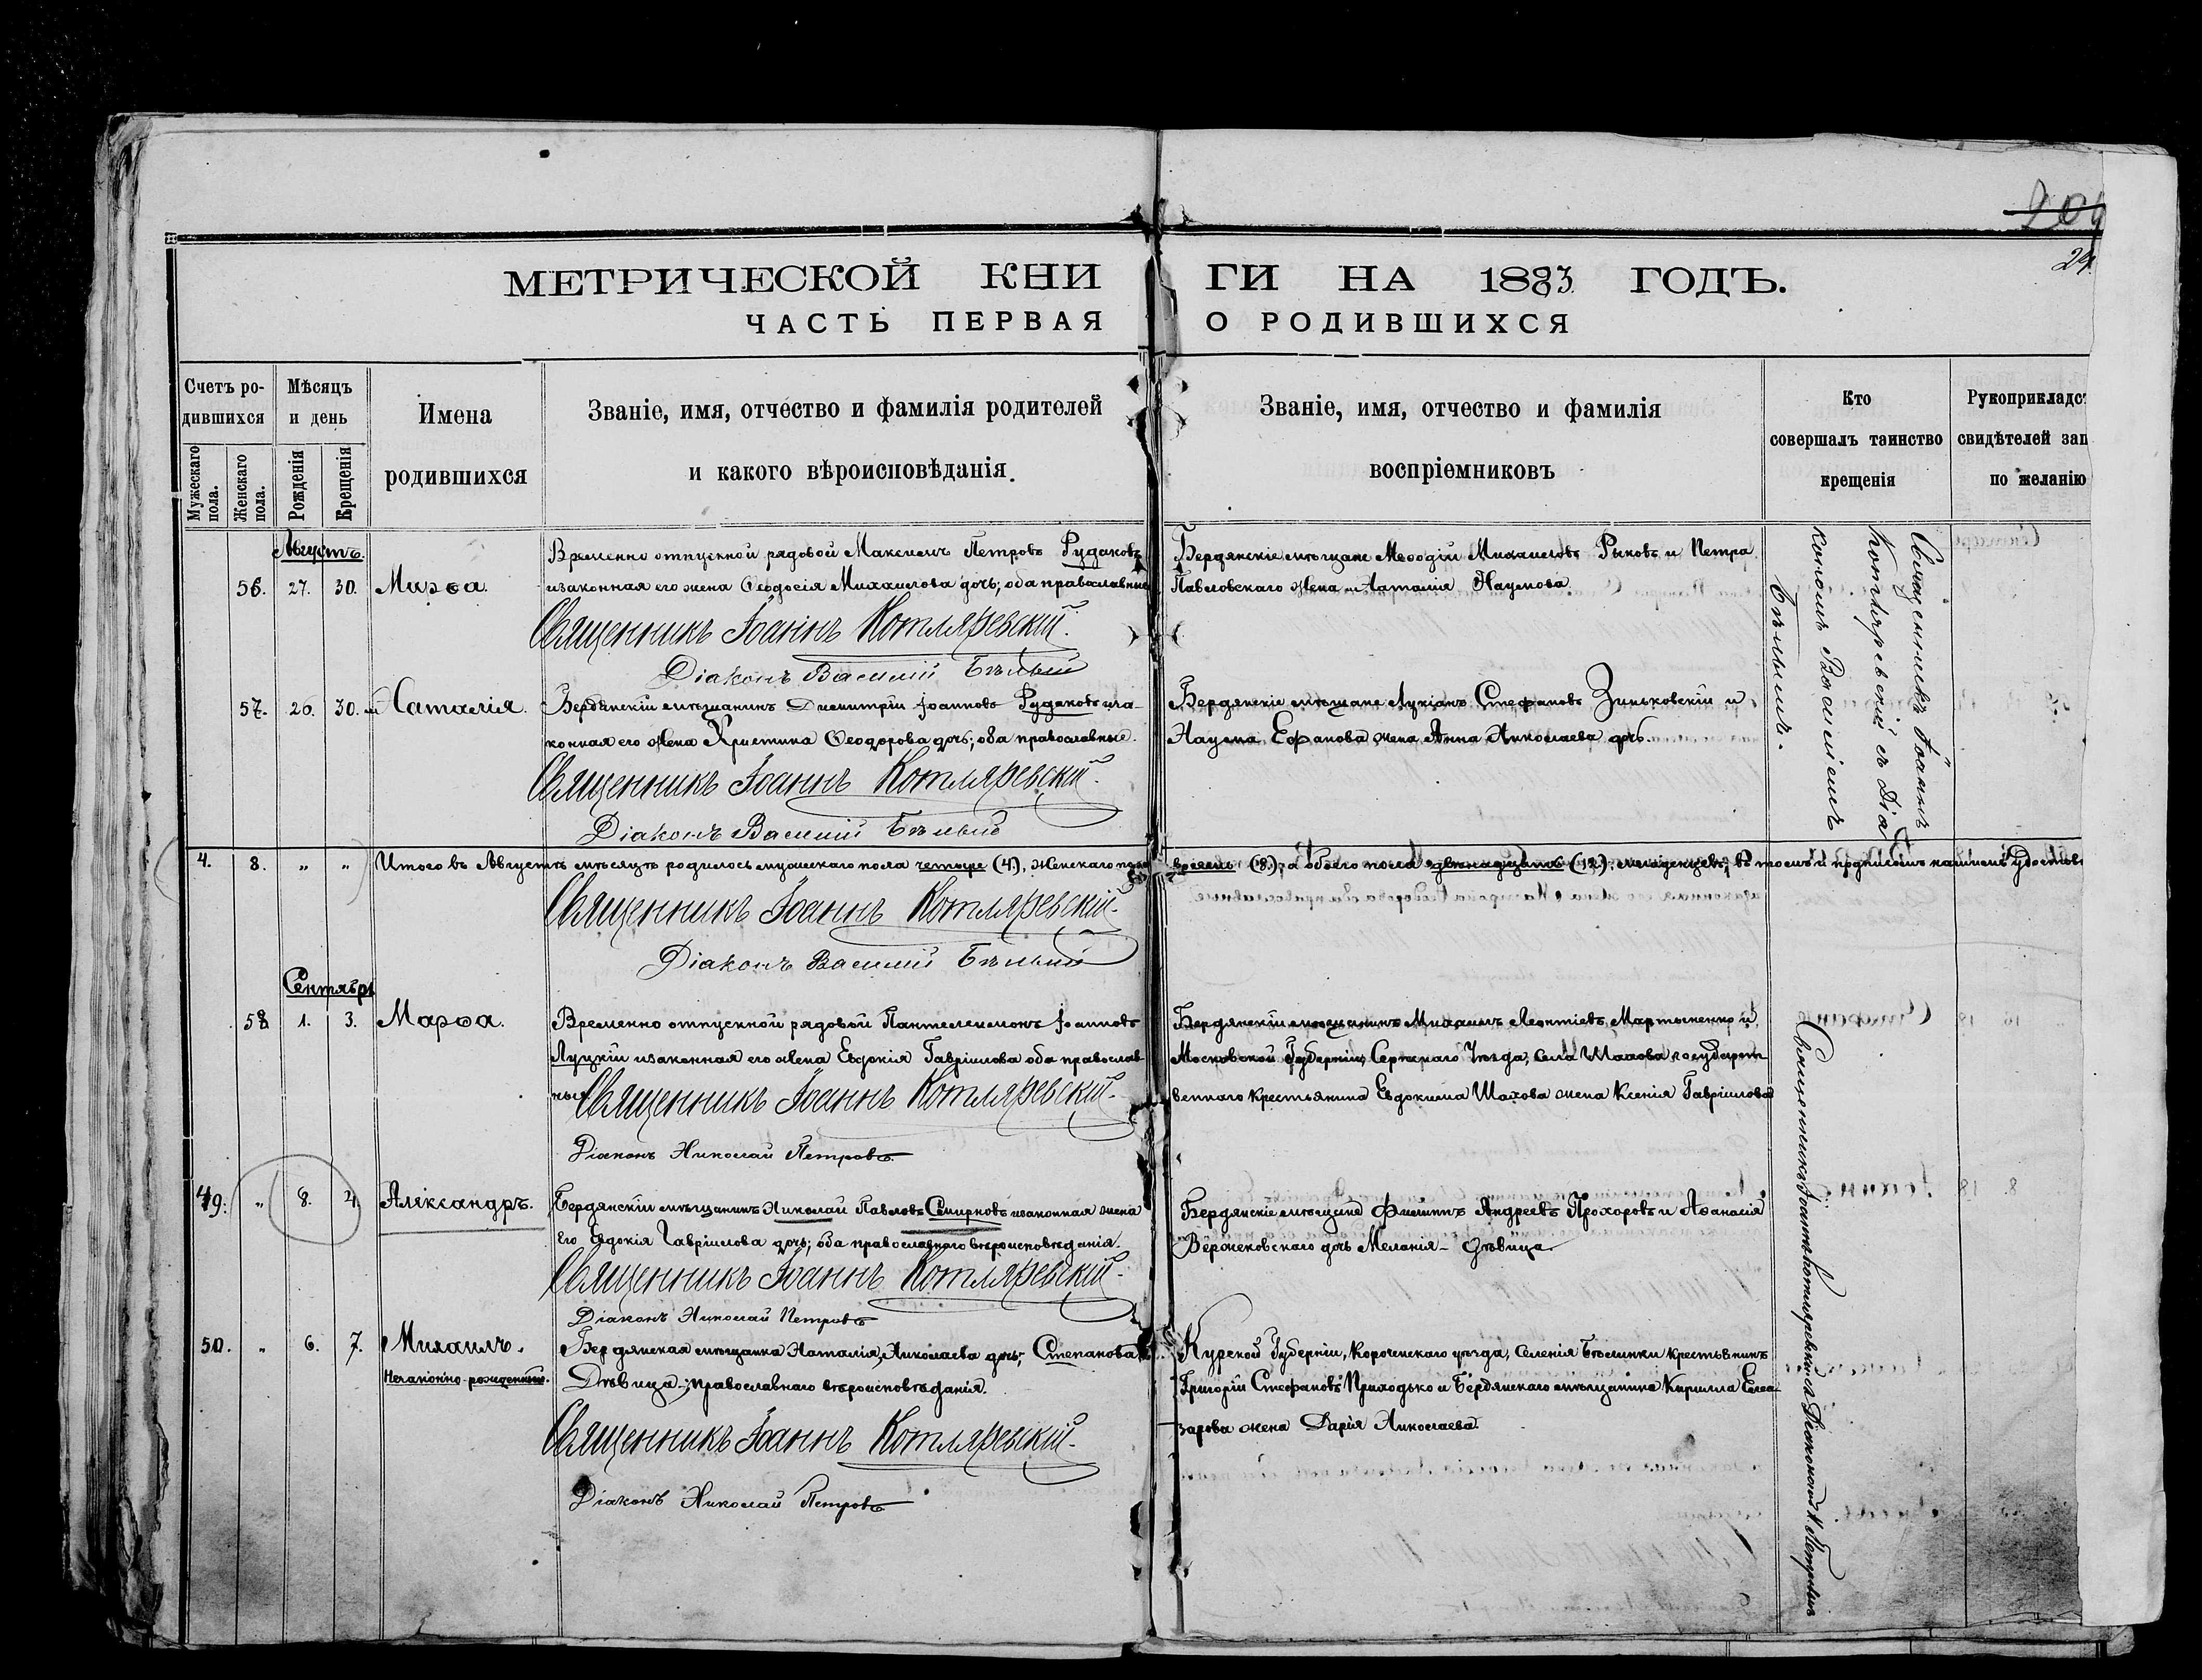 204
24
МЕТРИЧЕСКОЙ КНИ ГИ НА 1883 ГОДЪ.
ЧАСТЬ ПЕРВАЯ О РОДИВШИХСЯ
Счетъ ро-
дившихся
Мужескаго
пола.
Женскаго
пола.
Мѣсяцъ
и день
Рожденія
Крещенія
Имена
родившихся
Званіе, имя, отчество и фамилія родителей
и какого вѣроисповѣданія.
Званіе, имя, отчество и фамилія
воспріемниковъ
Кто
совершалъ таинство
крещенія
Рукоприкладст
свидѣтелей зап
по желанію
Августъ.
56. 27. 30. Марѳа.
Временно отпускной рядовой Максимъ Петровъ Рудаковъ
изаконная его жена Ѳеодосія Михаилова дочь; оба православные
Бердянскіе мѣщане Меѳодій Михаиловъ Рыковъ и Петра
Павловскаго жена Наталія Наумова.
Священникъ Іоаннъ Котляревскій.
Діаконъ Василій Бѣлый
57. 26. 30. Наталія.
Бердянскій мѣщанинъ Димитрій Іоанновъ Рудаковъ иза-
конная его жена Христина Ѳеодорова дочь; оба православные.
Бердянскіе мѣщане Лукіанъ Стефановъ Зиньковскій и
Наума Ефанова жена Анна Николаева дочь.
Священникъ Іоаннъ Котляревскій.
Діаконъ Василій Бѣлый
Священникъ Іоаннъ
Котляревскій съ Діа
кономъ Василіемъ
Бѣлымъ.
4. 8. " " Итого въ Августѣ мѣсяцѣ родилось мужескаго пола четыре (4), женскаго пола восемь (8); а обоего пола двенадцать (12) младенцевъ; въ томъ и подписомъ нашимъ удостов
Священникъ Іоаннъ Котляревскій.
Діаконъ Василій Бѣлый
Сентябрь
58 1. 3. Марѳа.
Временно отпускной рядовой Пантелеимонъ Іоанновъ
Луцкій изаконная его жена Евдокія Гавріилова оба православ-
ные
Бердянскій мѣщанинъ Михаилъ Леонтіевъ Мартыненко и
Московской Губерніи, Серпскаго Уѣзда, села Шахова государст-
веннаго крестьянина Евдокима Шахова жена Ксенія Гавріилова
Священникъ Іоаннъ Котляревскій.
Діаконъ Николай Петровъ
49. " 8. 4. Александръ.
Бердянскій мѣщанинъ Николай Павловъ Смирновъ изаконная жена
Его Евдокія Гавріилова дочь; оба православнаго вѣроисповѣданія.
Бердянскіе мѣщане Филиппъ Андреевъ Прохоровъ и Аѳанасія
Верженовскаго дочь Меланія - дѣвица.
Священникъ Іоаннъ Котляревскій.
Діаконъ Николай Петровъ
50. " 6. 7. Михаилъ.
Незаконно-рожденный.
Бердянская мѣщанка Наталія Николаева дочь; Степанова
Дѣвица; православнаго вѣроисповѣданія.
Курской Губерніи, Корочинскаго уѣзда, селенія Бѣлинки крестьянинъ
Григорій Стефановъ Приходько и Бердянскаго мѣщанина Кирилла Елеа-
зарова жена Дарія Николаева.
Священникъ Іоаннъ Котляревскій.
Діаконъ Николай Петровъ
Священникъ Іоаннъ Котляревскій съ Діакономъ Н. Петровымъ